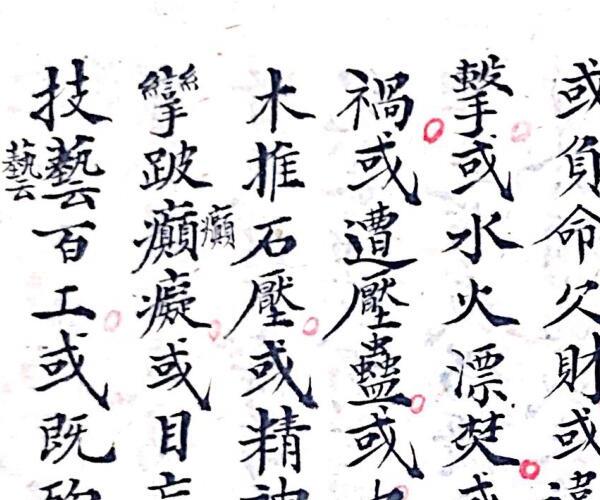 或負命欠財或違
擊或水火漂焚或
禍或遭壓蠱或
木推石壓或精神
攣跛癲癡或目盲
癲
技藝百工或既
藝